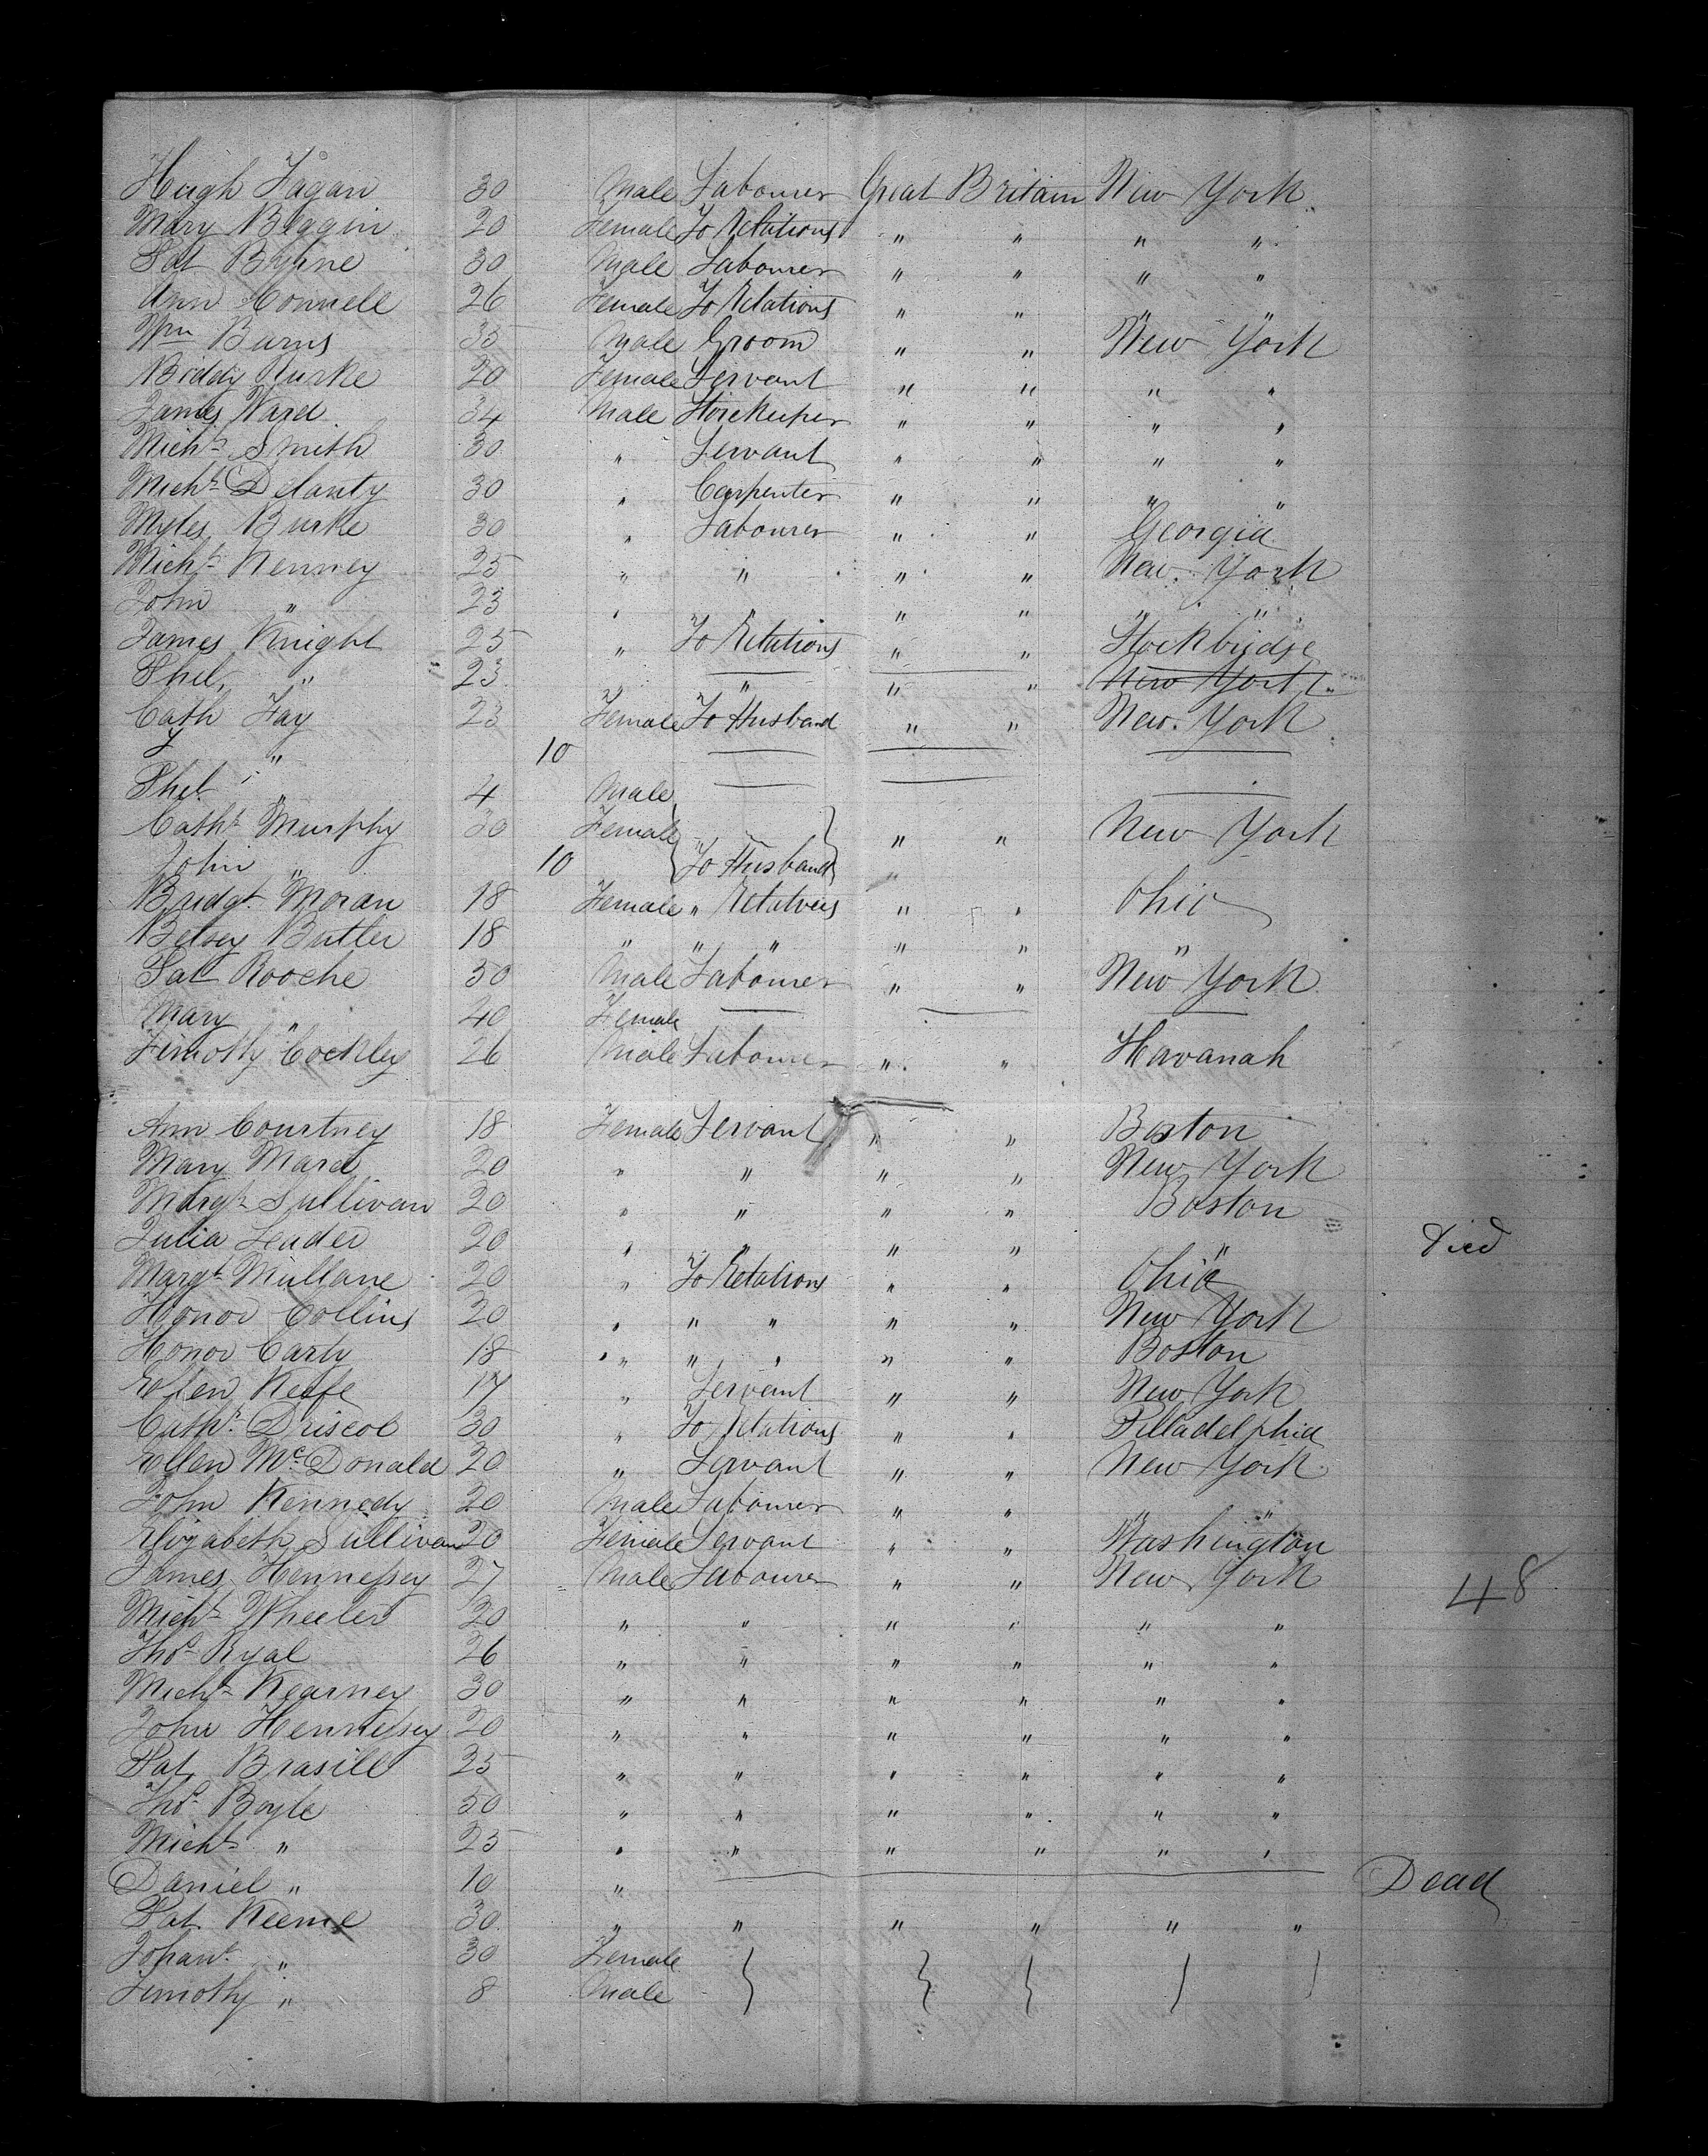 Hugh Fagan 30 Male Labourer Great Britain New York
Mary Biggin 20 Female To Relations " " " "
Pat Byrne 30 Male Labourer " " " "
Ann Connell 26 Female To Relations " " " "
Wm Burns 35 Male Groom " " New York
Biddy Burke 20 Female Servant " " " "
James Ward 34 Male Storekeeper " " " "
Michl Smith 30 " Servant " " " "
Michl Delanty 30 " Carpenter " " " "
Myles Burke 30 " Labourer " " Georgia
Michl Kenney 25 " " " " New York
John " 23 " " " " " "
James Knight 25 " To Relations " " Stockbridge
Phil " 23 " " " New York
Cath Fay 23 Female To Husband " " New York
" 10
Phil " 4 Male
Cathe Murphy 30 Female " " New York
John " 10 To Husband "
Bridgt Moran 18 Female " Relatives " " Ohio
Betsey Butler 18 " " " " " "
Pat Rooche 50 Male Labourer " " New York
Mary " 40 Female
Timothy Cockley 26 Male Labourer " " Havanah
Ann Courtney 18 Female Servant " " Boston
Mary Mara 20 " " " " New York
Margt Sullivan 20 " " " " Boston
Julia Leader 20 " " " " " Died
Margt Mullane 20 " To Relations " " Ohio
Honor Collins 20 " " " " " New York
Honor Carty 18 " " " " " " Boston
Ellen Keefe 17 " Servant " " New York
Cathe Driscol 30 " To Relations " " Pilladelphia
Ellen McDonald 20 " Servant " " New York
John Kennedy 20 Male Labourer " " " "
Elizabeth Sullivan 20 Female Servant " " Washington
James Hennessey 27 Male Labourer " " New York 48
Michl Wheeler 20 " " " " " "
Thos Ryal 26 " " " " " "
Michl Kearney 30 " " " " " "
John Hennessey 20 " " " " " "
Pat Brasill 25 " " " " " "
Thos Boyle 50 " " " " " "
Michl " 25 " " " " " "
Daniel " 10 " Dead
Pat Keeme 30 " " " " " "
Johan " 30 Female
Timothy " 8 Male